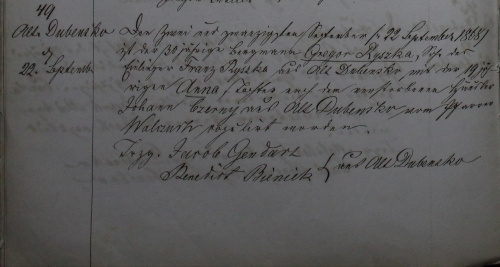 49
Alt Dubensko
d
22. Septemb.
Den zwei und zwanzigsten September (: 22 September 1868 :)
ist der 30 jährige Bergmann Gregor Ryszka, Sohn des
Einlieger Franz Ryszka aus Alt Dubensko mit der 19 jäh-
rigen Anna Tochter nach dem verstorbenen Häusler
Johann Czerny aus Alt Dubensko vom Pfarrer
copulirt worden.
Trzg. Jacob Gendarz
Benedict } aus Alt Dubensko